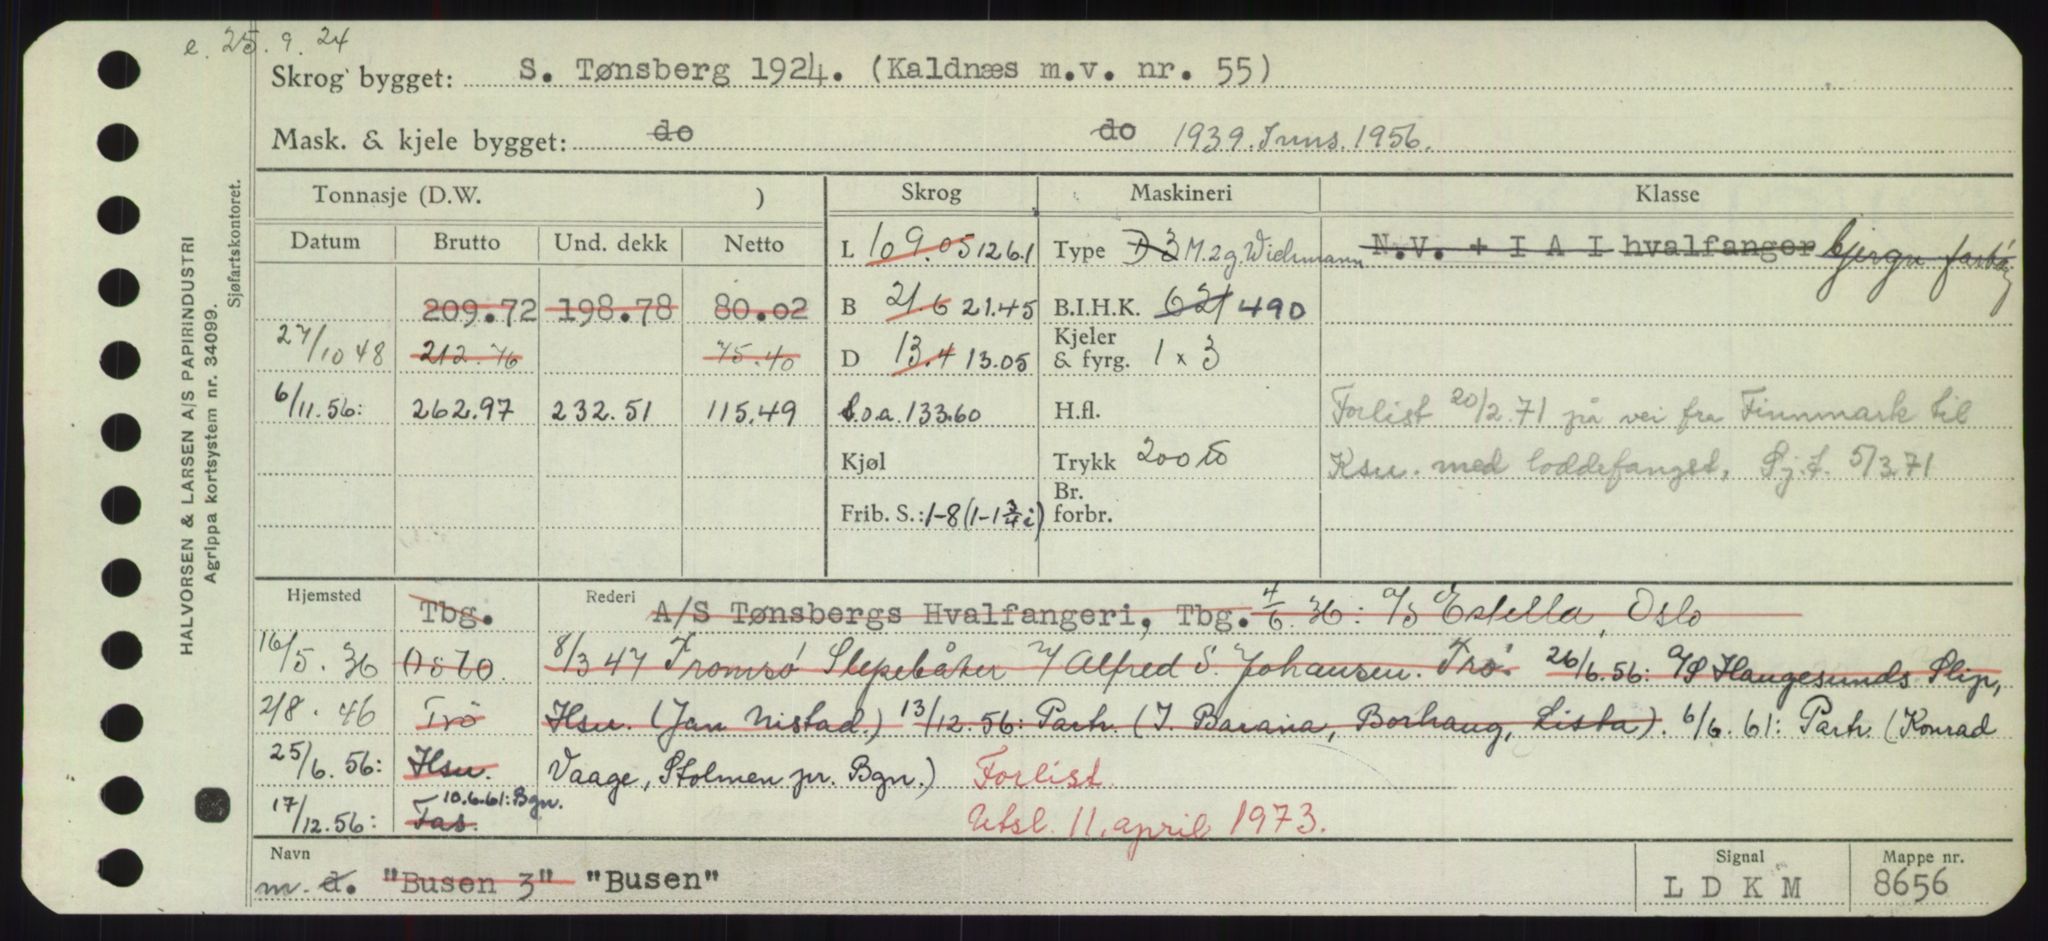 e. 25.9.24
Skrog bygget: S. Tønsberg 1924. (Kaldnæs m.v. nr. 55)
Mask. & kjele bygget: do do 1939. Inns. 1956.
Tonnasje (D.W. ) Skrog Maskineri Klasse
Datum Brutto Und. dekk Netto L 109.05 126.1 Type D 3 M. 2 g. Wichmann N.V. + I A I hvalfanger
209.72 198.78 80.02 B 21.6 21.45 B.I.H.K. 621 490
27/10 48 212.76 75.40 D 13.4 13.05 Kjeler & fyrg. 1 x 3
6/11.56: 262.97 232.51 115.49 L.o.a. 133.60 H.fl. Forlist 20/2.71 på vei fra Finnmark til
Kjøl Trykk 200 Ksu. med loddefangst, Sj.f. 5/3.71
Frib. S.: 1-8 (1-1 3/4 i) Br. forbr.
Hjemsted Tbg. Rederi A/S Tønsbergs Hvalfangeri, Tbg. 4/6.36: A/S Estella, Oslo
16/5.36 Oslo. 8/3 47 Tromsø Slepebåter v/ Alfred S. Johansen. Trø. 26/6.56: A/S Haugesunds Slip,
2/8.46 Trö Hsu. (Jan Nistad.) 13/12.56: Partr. (I. Barana, Borhaug, Lista). 6/6.61: Partr. (Konrad
25/6.56: Hsu. Vaage, Stolmen pr. Bgn.) Forlist.
17/12.56: Fas. 10.6.61: Bgn. Utsl. 11. april 1973.
Navn m. d. "Busen 3" "Busen" Signal L D K M Mappe nr. 8656
HALVORSEN & LARSEN A/S PAPIRINDUSTRI
Agrippa kortsystem nr. 34099.
Sjøfartskontoret.